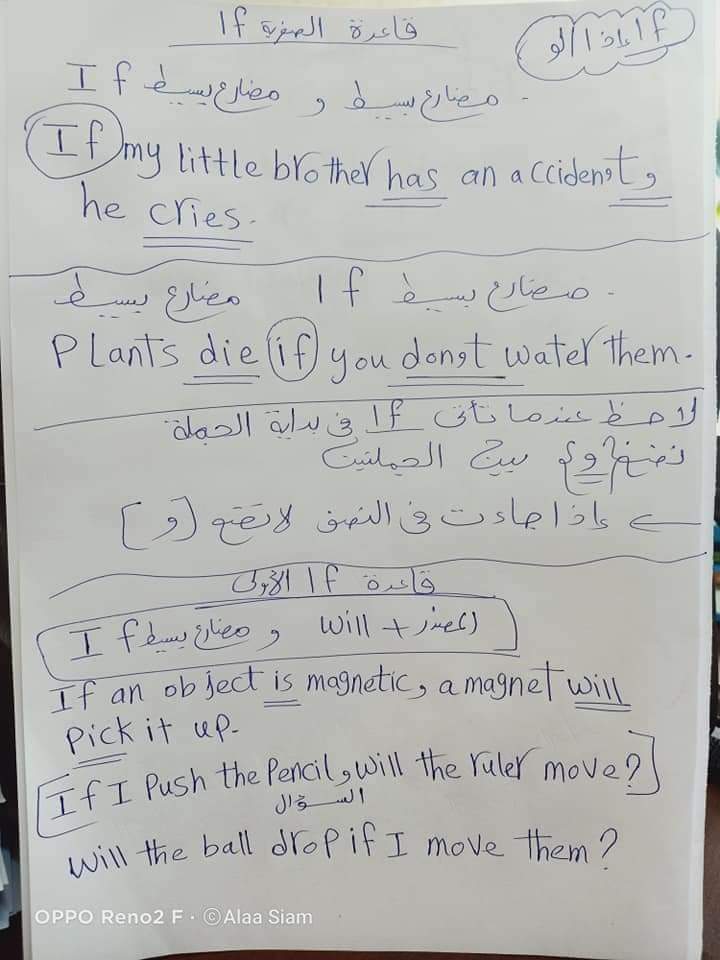 قاعدة If الصفرية
If إذا / لو
If مضارع بسيط و مضارع بسيط.
If my little brother has an accident و
he cries.
مضارع بسيط If مضارع بسيط.
Plants die if you don't water them.
لاحظ عندما تأتى If فى بداية الجملة
نضع {و} بين الجملتين
← إذا جاءت فى النصف لا نضع [و]
قاعدة If الأولى
If مضارع بسيط و will + المصدر
If an object is magnetic, a magnet will
pick it up.
If I push the pencil, will the ruler move?
السؤال
Will the ball drop if I move them?
OPPO Reno2 F · ©Alaa Siam